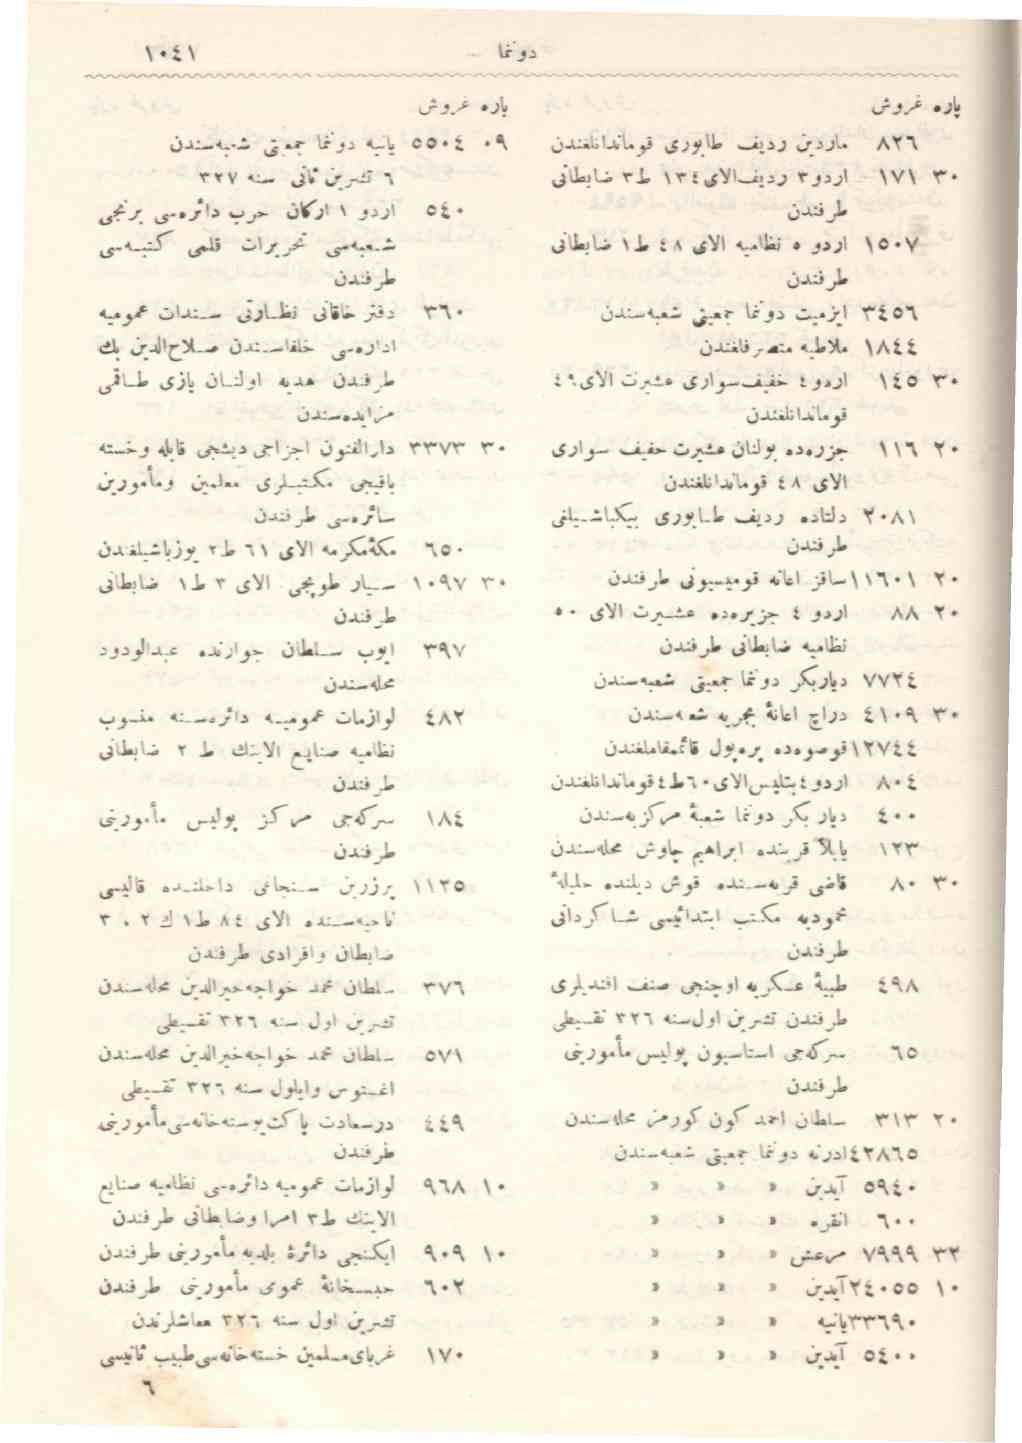 دوننما
١٠٤١
پاره غروش
٨٢٦ ماردین ردیف طابوری قوماندانلغندن
٣٠ ١٧١ اردو ٣ ردیف الای ١٣٤ ط ٣ ضابطانی
طرفندن
١٥٠٧ اردو ٥ نظامیه الای ٤٨ ط ١ ضابطانی
طرفندن
٣٤٥٦ ایزمیت دوننما جمعیتی شعبه‌سندن
١٨٤٤ ملاطیه متصرفلغندن
٣٠ ١٤٥ اردو ٤ خفیف سواری عشیرت الای ٤٩
قوماندانلغندن
٢٠ ١١٦ جزره‌ده بولنان عشیرت خفیف سواری
الای ٤٨ قوماندانلغندن
٢٠٨١ دلتاده ردیف طابوری بیکباشیلغی
طرفندن
٢٠ ١١٦٠١ ساقز اعانه قومیسیونی طرفندن
٢٠ ٨٨ اردو ٤ جزیره‌ده عشیرت الای ٥٠
نظامیه ضابطانی طرفندن
٧٧٢٤ دیاربکر دوننما جمعیتی شعبه‌سندن
٣٠ ٤١٠٩ دراج اعانهٔ بحریه شعبه‌سندن
١٢٧٤٤ قوصوه‌ده پره‌پول قائمقاملغندن
٨٠٤ اردو ٤ بتلیس الای ٦٠ ط ٤ قوماندانلغندن
٤٠٠ دیار بکر دوننما شعبهٔ مرکزیه‌سندن
١٢٣ یابلا قربنده ابراهیم چاوش محله‌سندن
٣٠ ٨٠ قاضی قریه‌سنده قوش دیلنده حلیلهٔ
محمودیه مکتب ابتدائیسی شاکردانی
طرفندن
٤٩٨ طبیهٔ عسکریه اوچنجی صنف افندیلری
طرفندن تشرین اول سنه ٣٢٦ تقسیطی
٦٥ سرکه‌جی استاسیون پولیس مأمورینی
طرفندن
٢٠ ٣١٣ سلطان احمد کون کورمز محله‌سندن
٤٢٨٦٥ ادرنه دوننما جمعیتی شعبه‌سندن
٥٩٤٠ آیدین » » »
٦٠٠ انقره » » »
٣٢ ٧٩٩٩ مرعش » » »
١٠ ٢٤٠٥٥ آیدین » » »
٣٣٦٩٠ یانیه » » »
٥٤٠٠ آیدین » » »
پاره غروش
٠٩ ٥٥٠٤ یانیه دوننما جمعیتی شعبه‌سندن
٦ تشرین ثانی سنه ٣٢٧
٥٤٠ اردو ١ ارکان حرب دائره‌سی برنجی
شعبه‌سی تحریرات قلمی کتبه‌سی
طرفندن
٣٦٠ دفتر خاقانی نظارتی سندات عمومیه
اداره‌سی خلفاسندن صلاح‌الدین بك
طرفندن هدیه اولنان یازی طاقمی
مزایده‌سندن
٣٠ ٣٣٧٣ دارالفنون اجزاجی دیشجی قابله وخسته
باقیجی مکتبلری معلمین ومأمورین
سائره‌سی طرفندن
٦٥٠ مکهٔ مکرمه الای ٦١ ط ٢ یوزباشیلغندن
٣٠ ١٠٩٧ سیار طوپجی الای ٣ ط ١ ضابطانی
طرفندن
٣٩٧ ایوب سلطان جوارنده عبدالودود
محله‌سندن
٤٨٢ لوازمات عمومیه دائره‌سنه منسوب
نظامیه صنایع الاینك ط ٢ ضابطانی
طرفندن
١٨٤ سرکه‌جی مرکز پولیس مأمورینی
طرفندن
١١٢٥ پرزرین سنجاغی داخلنده قالیسی
ناحیه‌سنده الای ٨٤ ط ١ ك ٢ ، ٣
ضابطان وافرادی طرفندن
٣٧٦ سلطان محمد خواجه خیرالدین محله‌سندن
تشرین اول سنه ٣٢٦ تقسیطی
٥٧١ سلطان محمد خواجه خیرالدین محله‌سندن
اغستوس وایلول سنه ٣٢٦ تقسیطی
٤٤٩ درسعادت پاکت پوسته‌خانه‌سی مأمورینی
طرفندن
١٠ ٩٦٨ لوازمات عمومیه دائره‌سی نظامیه صنایع
الاینك ط ٣ امرا وضابطانی طرفندن
١٠ ٩٠٩ ایکنجی دائرهٔ بلدیه مأمورینی طرفندن
٦٠٢ حبسخانهٔ عمومی مأمورینی طرفندن
تشرین اول سنه ٣٢٦ معاشلرندن
١٧٠ غربای مسلمین خسته‌خانه‌سی طبیب ثانیسی
٦